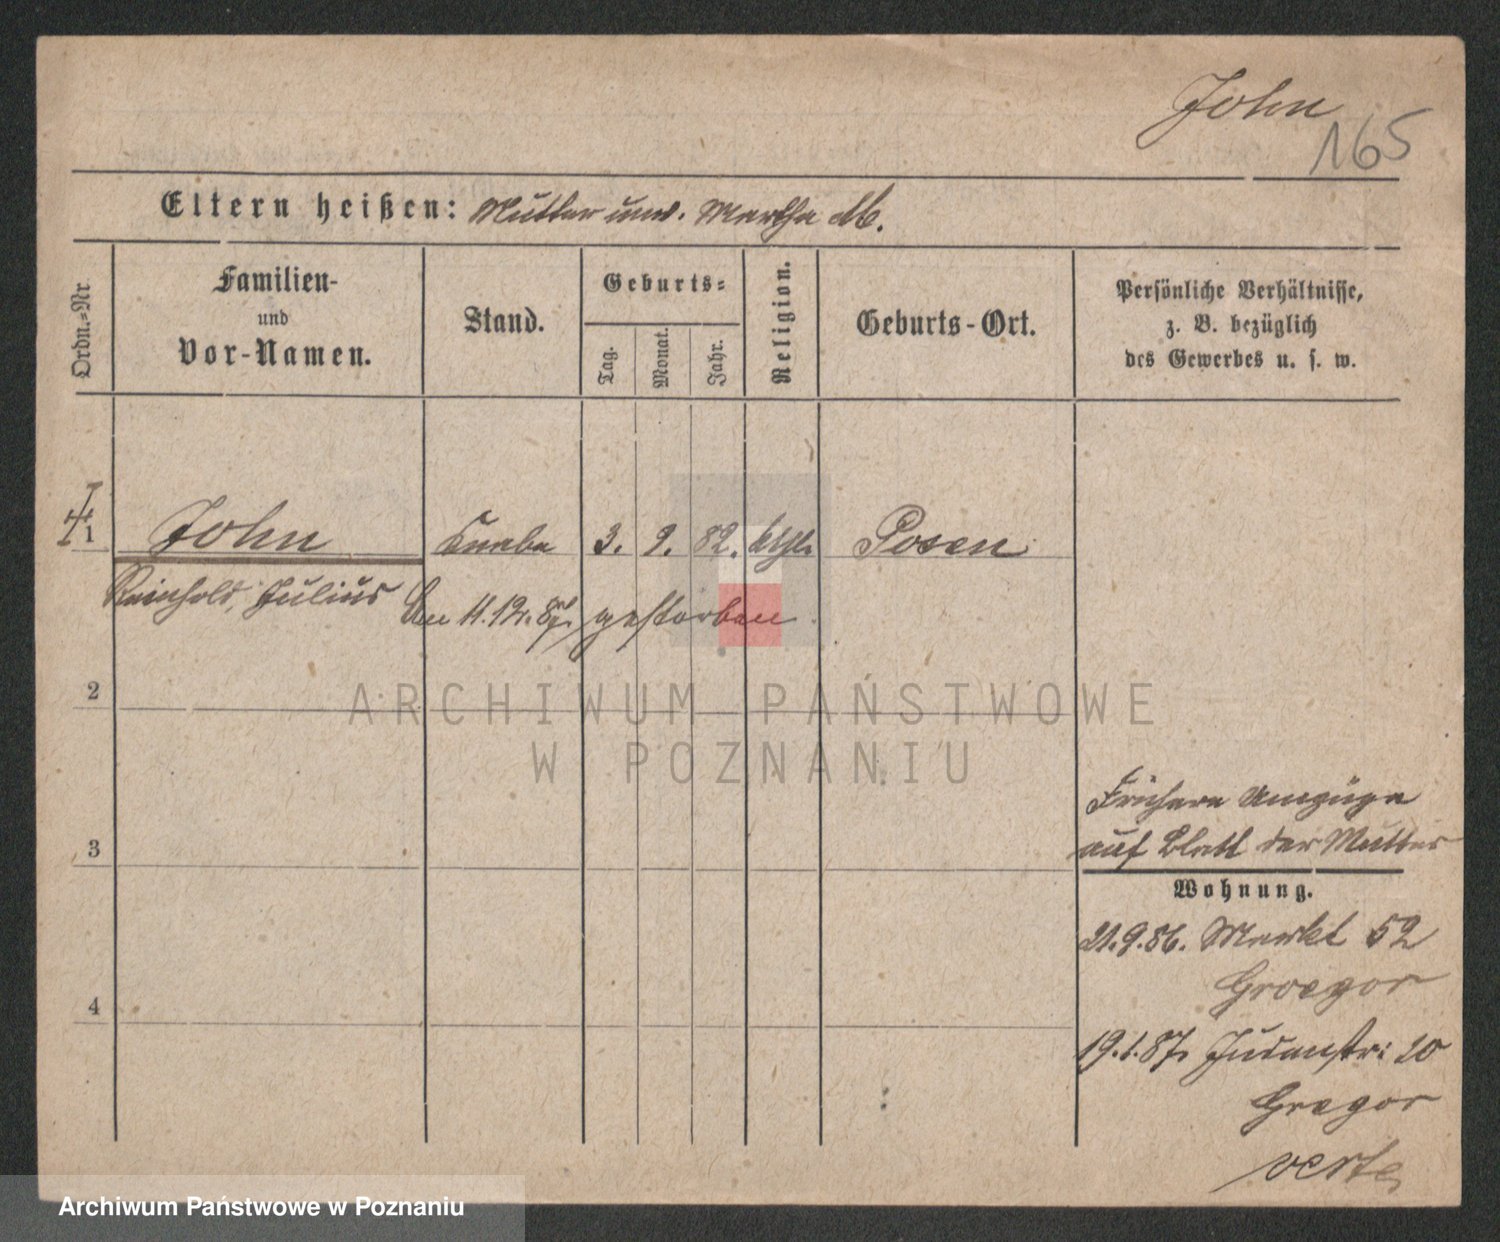 John
165
Eltern heißen: Mutter unv. Martha M.
Ordn.-Nr.
Familien-
und
Vor-Namen.
Stand.
Geburts-
Tag.
Monat.
Jahr.
Religion.
Geburts-Ort.
Persönliche Verhältnisse,
z. B. bezüglich
des Gewerbes u. s. w.
1 John Knabe 3. 9. 82. kthl. Posen
Reinhold, Julius
Am 11.12.87. gestorben.
2
ARCHIWUM PAŃSTWOWE
W POZNANIU
Frühere Umzüge
3 auf Blatt der Mutter
Wohnung.
21.9.86. Markt 52
Groegor
4
19.1.87. Judenstr: 20
Gregor
verte
Archiwum Państwowe w Poznaniu